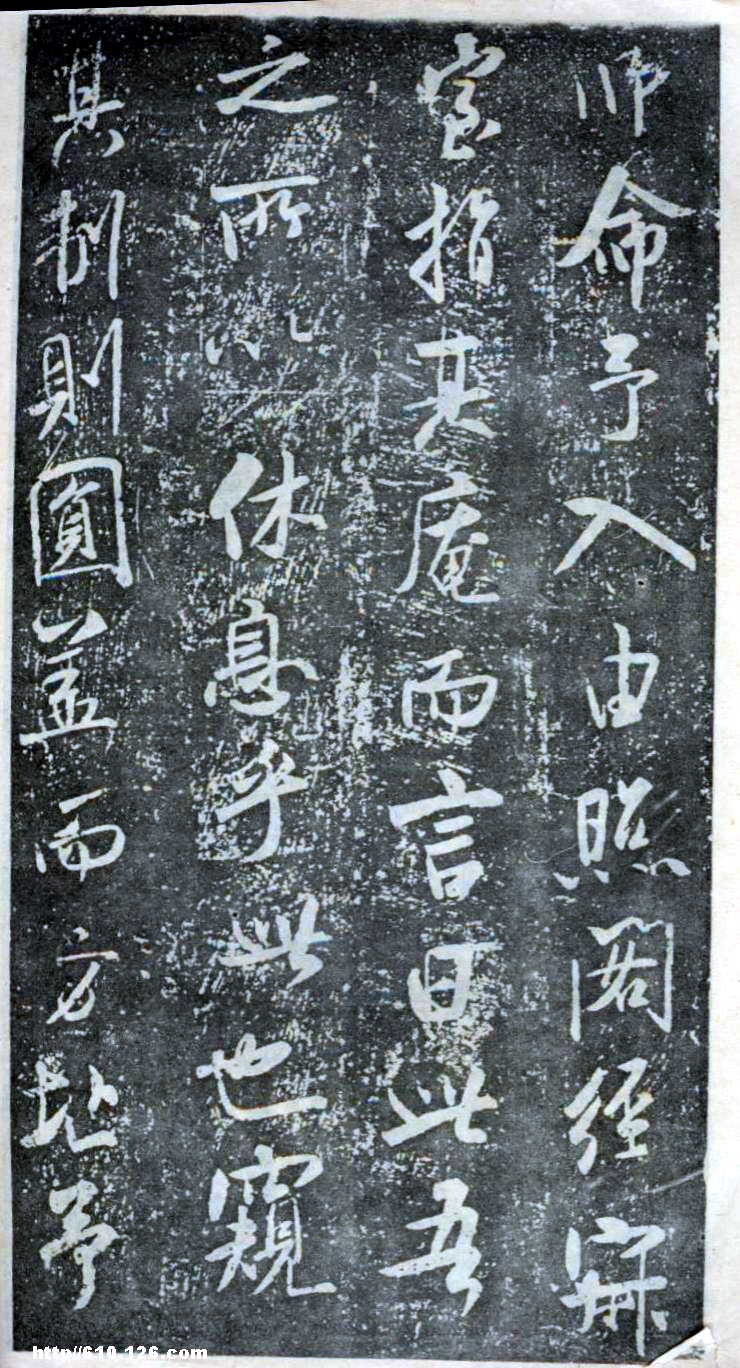 师命予入由照阁经寐
室指其庵而言曰此吾
之所以休息乎此也窥
其制则圆盖而方址予
http://610.126.com